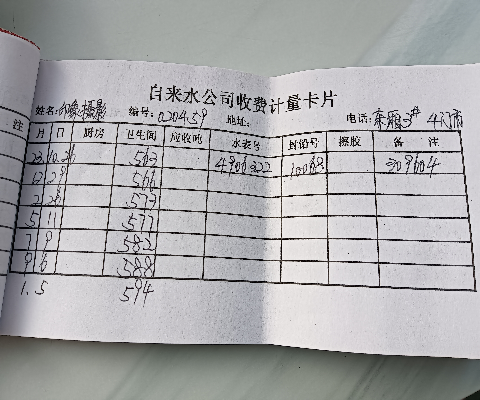 自来水公司收费计量卡片
姓名:印像摄影 编号:020459 地址: 电话:东厢3# 4门市
注
月 日 厨房 卫生间 应收吨 水表号 封铅号 擦胶 备 注
23 10.26 563 4906322 10068 309604
12 29 566
2 28 573
5 11 577
7 9 582
9 6 588
1.5 594